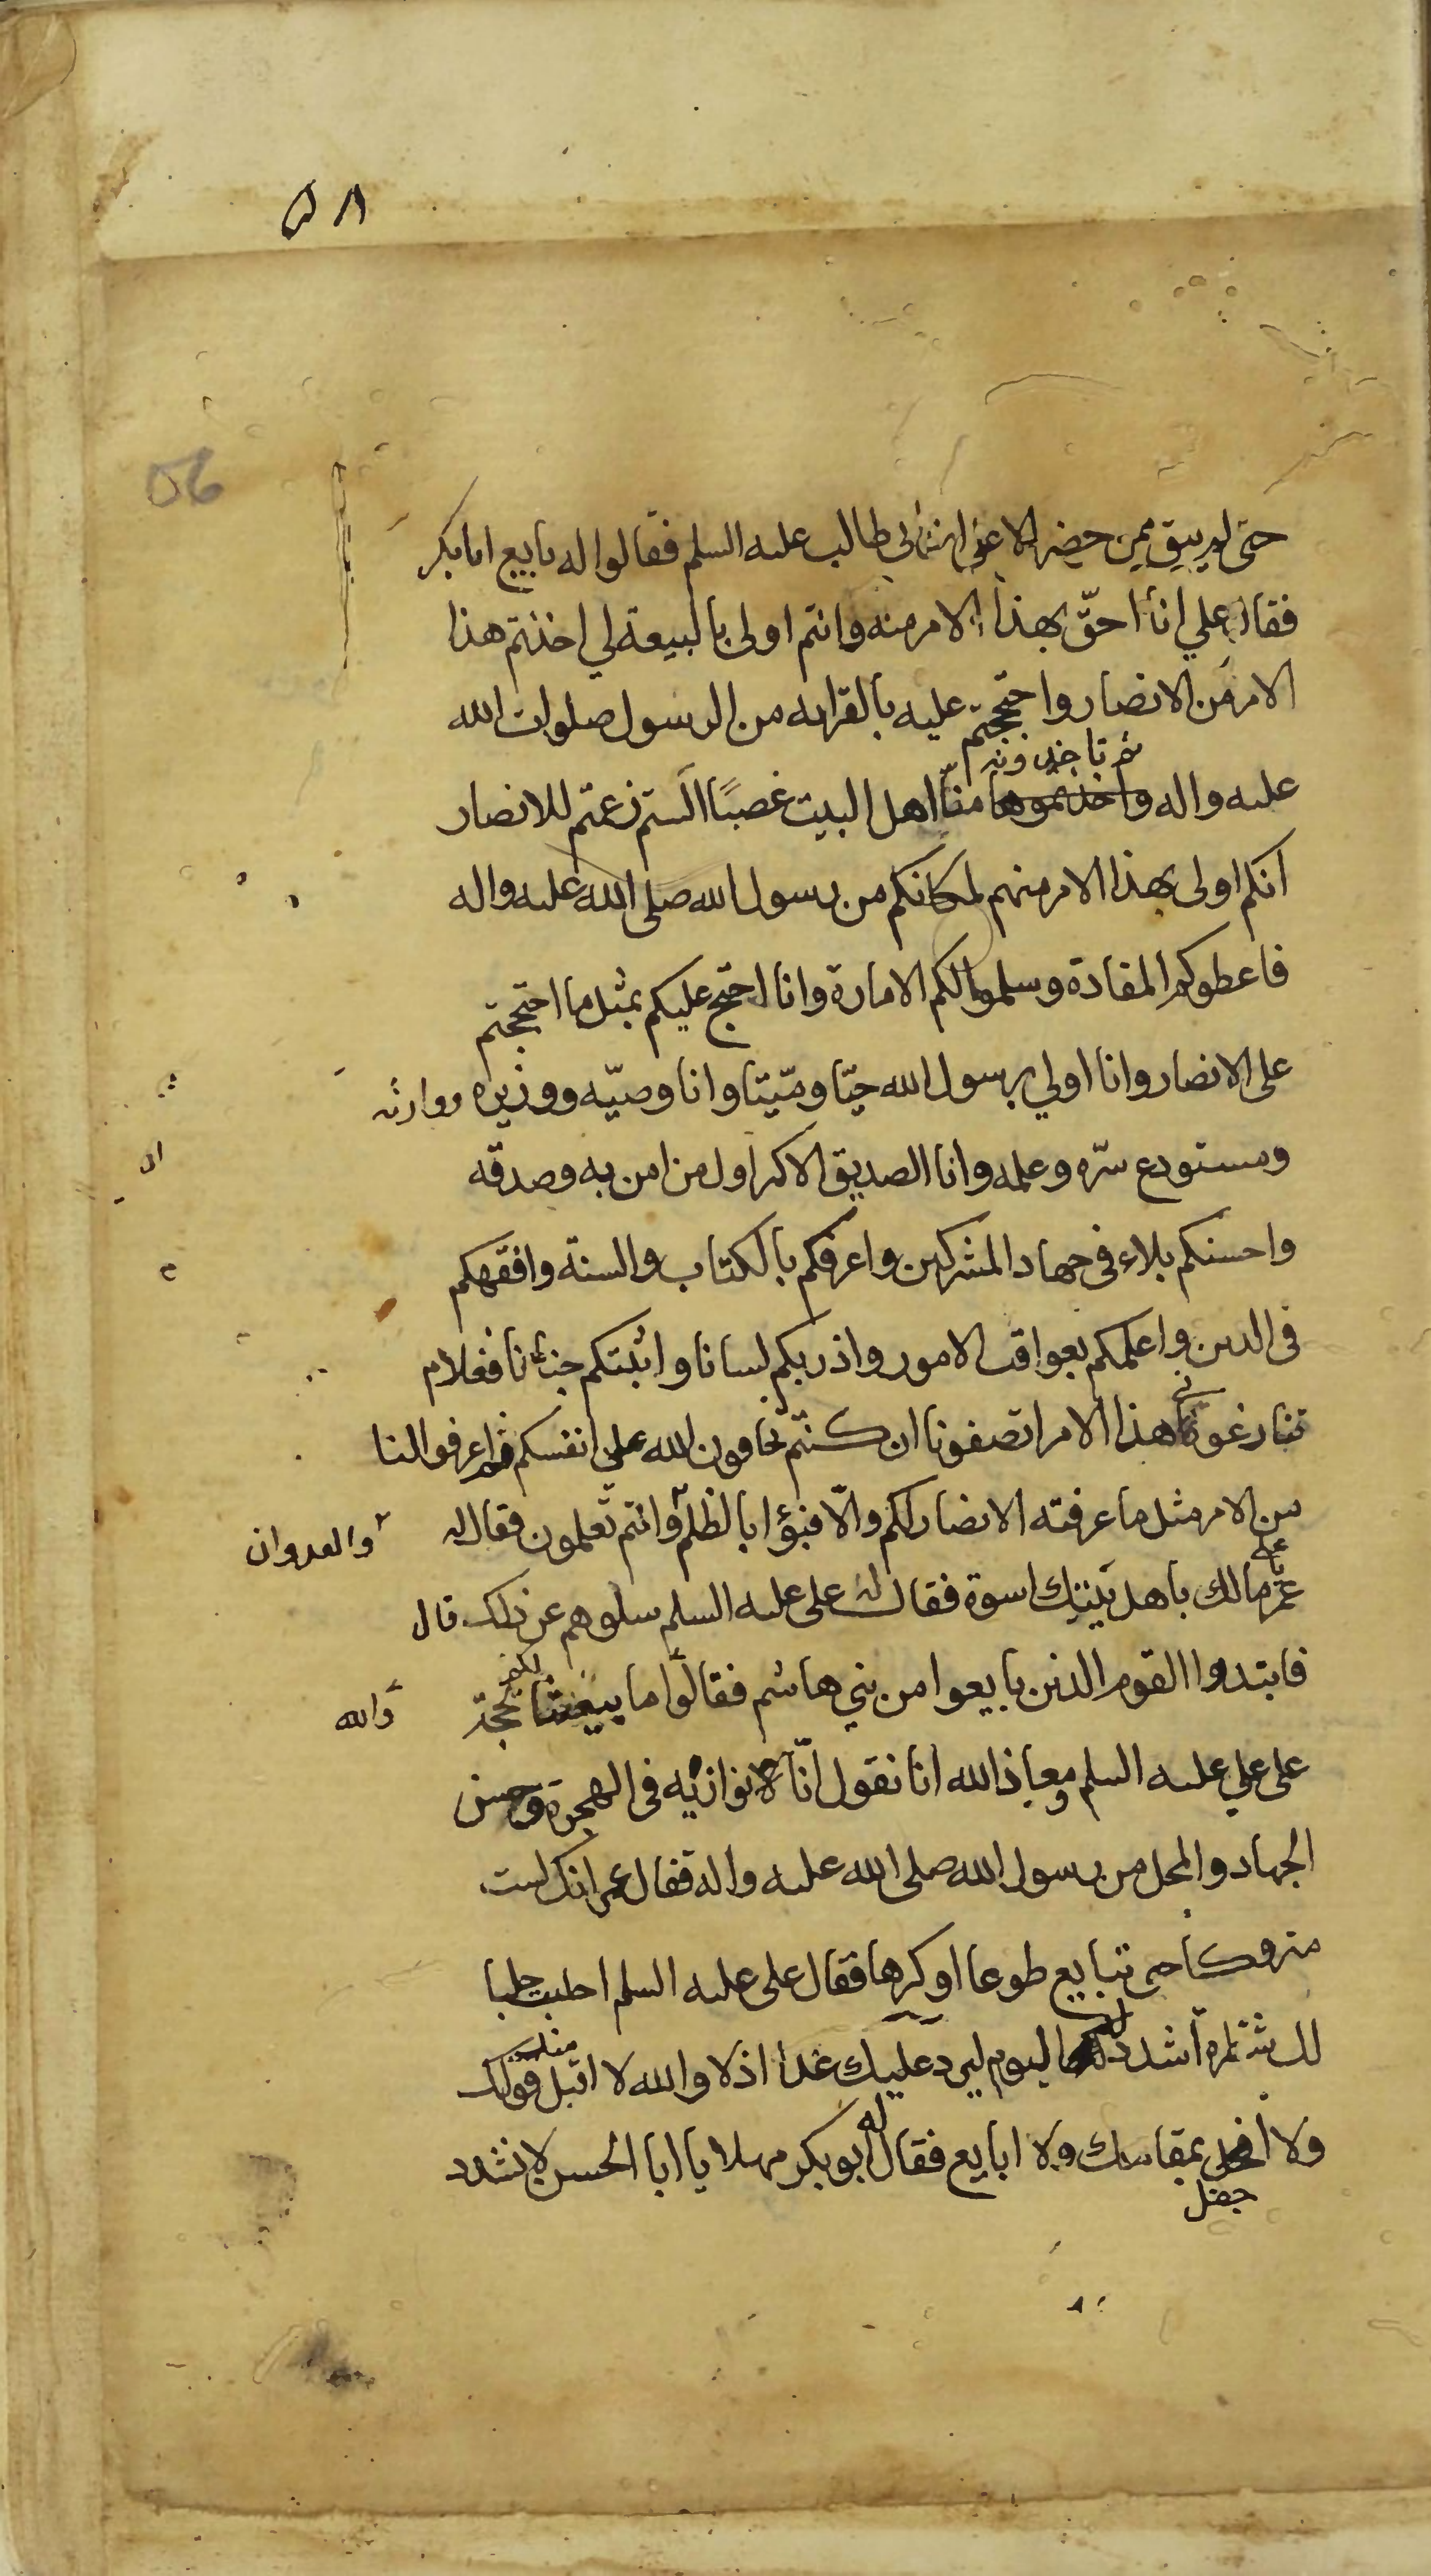 ٥٨
56
حتى لم يبق ممن حضر الا على بن ابى طالب عليه السلم فقالوا له بايع ابا بكر
فقال علي انا احقّ بهذا الامر منه وانتم اولى بالبيعة لي اخذتم هذا
الامر من الانصار واحتججتم عليه بالقرابه من الرسول صلوات الله
ثم تاخذونه
عليه واله واخذتموها منّا اهل البيت غصبًا الستم زعمتم للانصار
انكم اولى بهذا الامر منهم لمكانكم من رسول الله صلى الله عليه واله
فاعطوكم المقادة وسلموا لكم الامارة وانا احتج عليكم بمثل ما احتججتم
على الانصار وانا اولي برسول الله حيّا وميّتا وانا وصيّه ووزيره ووارثه
ومستودع سرّه وعلمه وانا الصديق الاكبر اول من امن به وصدقه
واحسنكم بلاء فى جهاد المشركين واعرفكم بالكتاب والسنة وافقهكم
فى الدين واعلمكم بعواقب الامور واذربكم لسانا واثبتكم جنانا فعلام
تنازعونا هذا الامر انصفونا ان كنتم تخافون الله على انفسكم واعرفوا لنا
من الامر مثل ما عرفته الانصار لكم والّا فبؤا بالظلم وانتم تعلمون فقال له
والعدوان
عمر مالك باهل بيتك اسوة فقال له على عليه السلم سلوهم عن ذلك قال
فابتدوا القوم الذين بايعوا من بني هاشم فقالوا ما بيعتنا لكم بحجة
والله
على علي عليه السلم ومعاذ الله انا نقول انّا نوازيه فى الهجرة وحسن
الجهاد والمحل من رسول الله صلى الله عليه واله فقال عمر انك لست
متروكا حتى تبايع طوعا او كرها فقال على عليه السلم احلب حلبا
لك شطره اشدد له اليوم ليرد عليك غدا اذلا والله لا اقبل قولك
منك
ولا احفل بمقامك ولا ابايع فقال له ابو بكر مهلا يا ابا الحسن لا نشدد